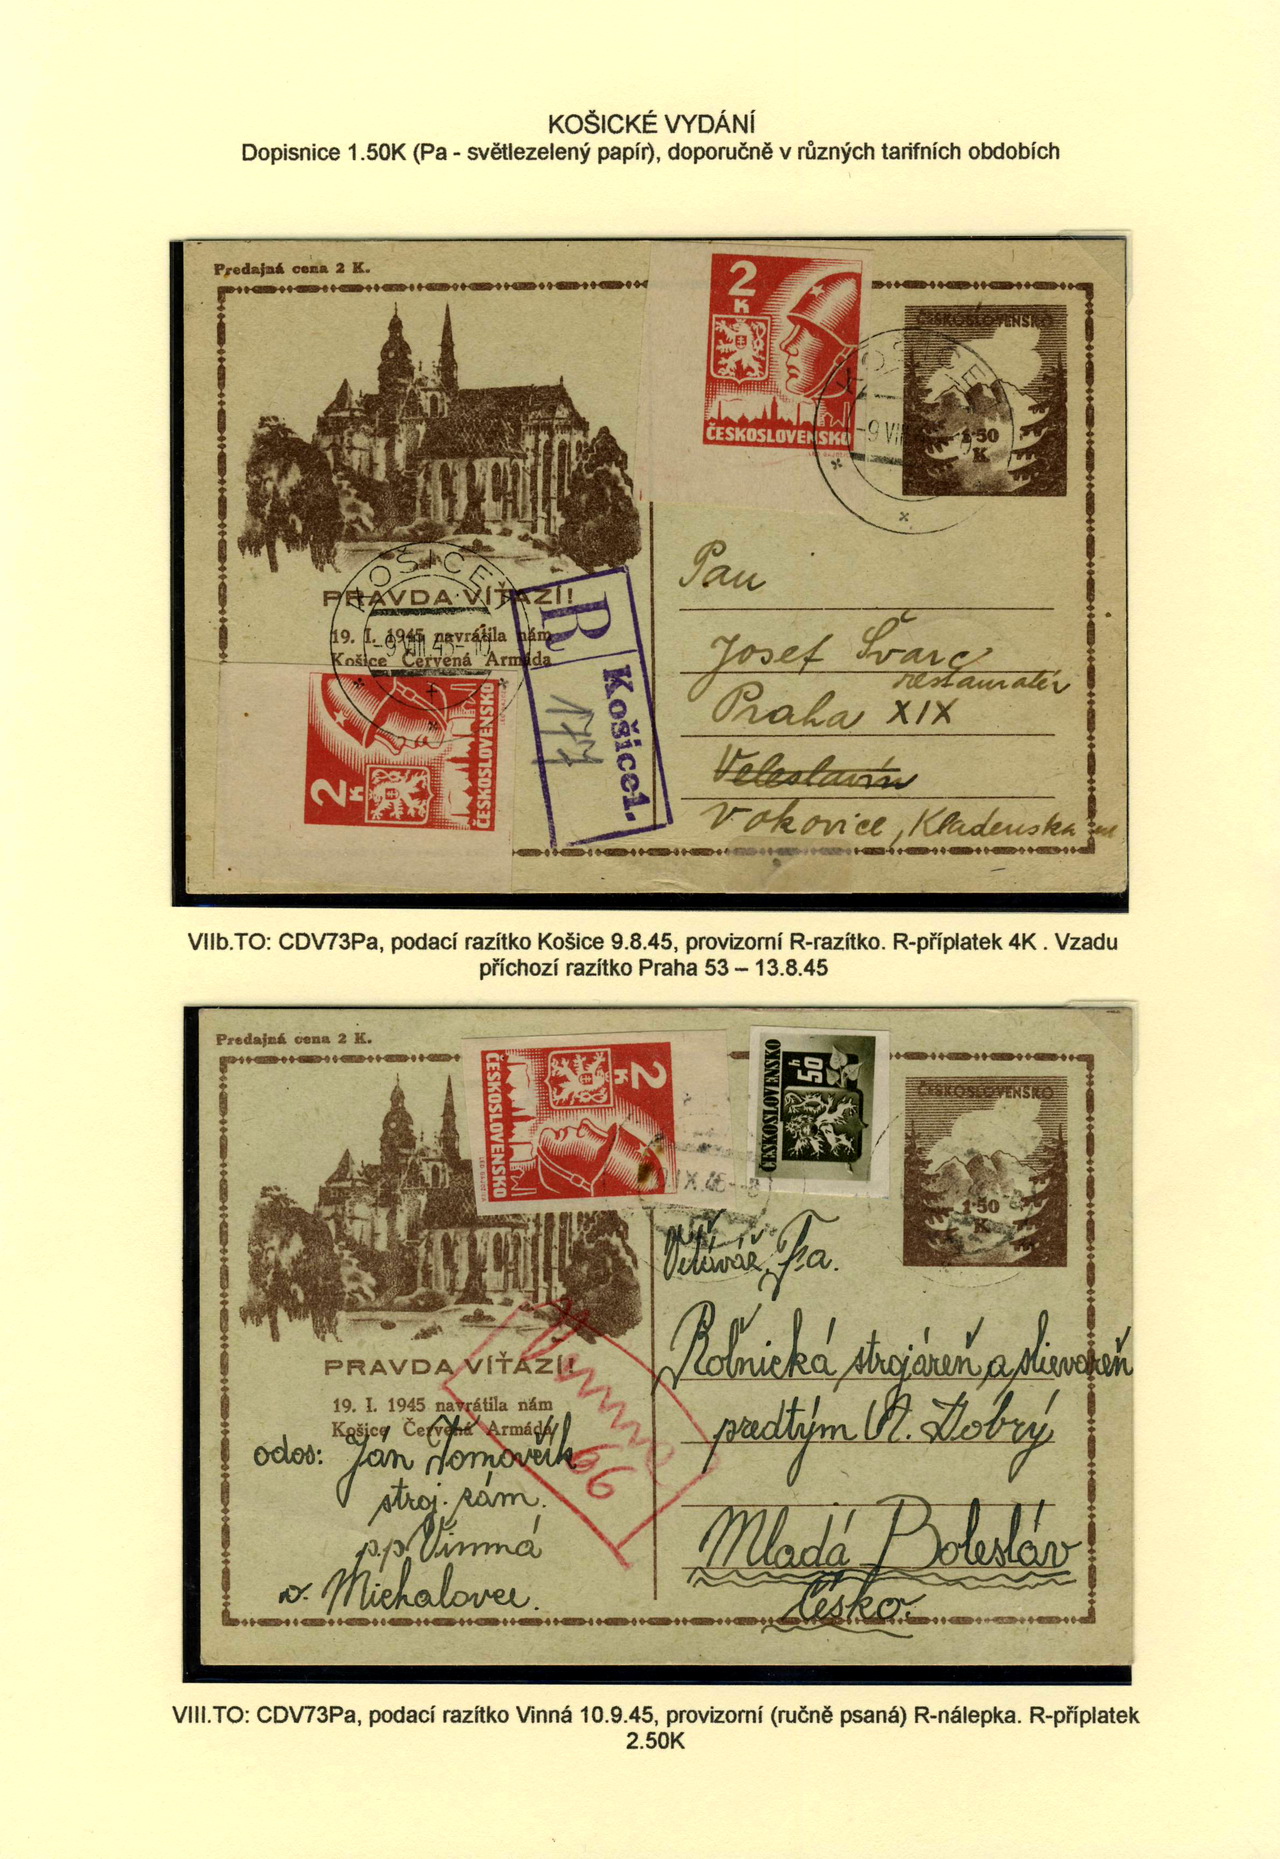 KOŠICKÉ VYDÁNÍ
Dopisnice 1.50K (Pa - světlezelený papír), doporučně v různých tarifních obdobích
Predajná cena 2 K.
2
K
ČESKOSLOVENSKO
ČESKOSLOVENSKO
1·50
K
KOŠICE
-9 VII
PRAVDA VÍŤAZÍ!
19. I. 1945 navrátila nám
Košice Červená Armáda
KOŠICE
-9 VIII.45-10
2
K
ČESKOSLOVENSKO
R
Košice1.
177
Pan
Josef Švarc
restauratér
Praha XIX
Veleslavín
Vokovice, Kladenska
VIIb.TO: CDV73Pa, podací razítko Košice 9.8.45, provizorní R-razítko. R-příplatek 4K . Vzadu
příchozí razítko Praha 53 – 13.8.45
Predajná cena 2 K.
2
K
ČESKOSLOVENSKO
50
h
ČESKOSLOVENSKO
ČESKOSLOVENSKO
1·50
K
IX.45-8
PRAVDA VÍŤAZÍ!
19. I. 1945 navrátila nám
Košice Červená Armáda
66
odos: Ján Tomovčík
stroj. zám.
p.p Vinná
o. Michalovce.
Fa.
Roľnická strojáreň a slieváreň
predtým A. Dobrý
Mladá Boleslav
Česko.
VIII.TO: CDV73Pa, podací razítko Vinná 10.9.45, provizorní (ručně psaná) R-nálepka. R-příplatek
2.50K